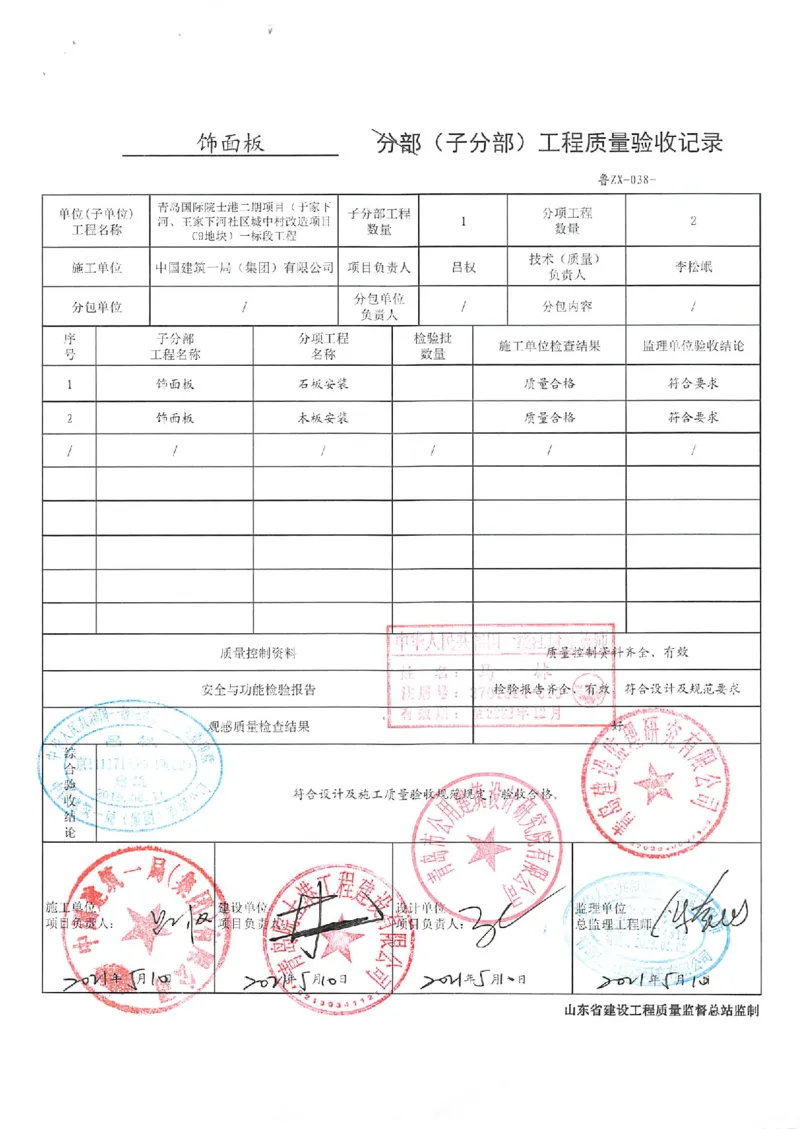 饰面板 分部（子分部）工程质量验收记录
鲁ZX-038-
单位(子单位)工程名称 青岛国际院士港二期项目（于家下河、王家下河社区城中村改造项目C9地块）一标段工程 子分部工程数量 1 分项工程数量 2
施工单位 中国建筑一局（集团）有限公司 项目负责人 吕权 技术（质量）负责人 李松岷
分包单位 / 分包单位负责人 / 分包内容 /
序号 子分部工程名称 分项工程名称 检验批数量 施工单位检查结果 监理单位验收结论
1 饰面板 石板安装 质量合格 符合要求
2 饰面板 木板安装 质量合格 符合要求
/ / / / / /
质量控制资料 质量控制资料齐全、有效
安全与功能检验报告 检验报告齐全、有效、符合设计及规范要求
观感质量检查结果 好
综合验收结论 符合设计及施工质量验收规范规定，验收合格。
施工单位 建设单位 设计单位 监理单位
项目负责人： 项目负责人 项目负责人： 总监理工程师
2021年5月10 2021年5月10日 2021年5月10日 2021年5月10
山东省建设工程质量监督总站监制
青岛市公用建筑设计研究院有限公司